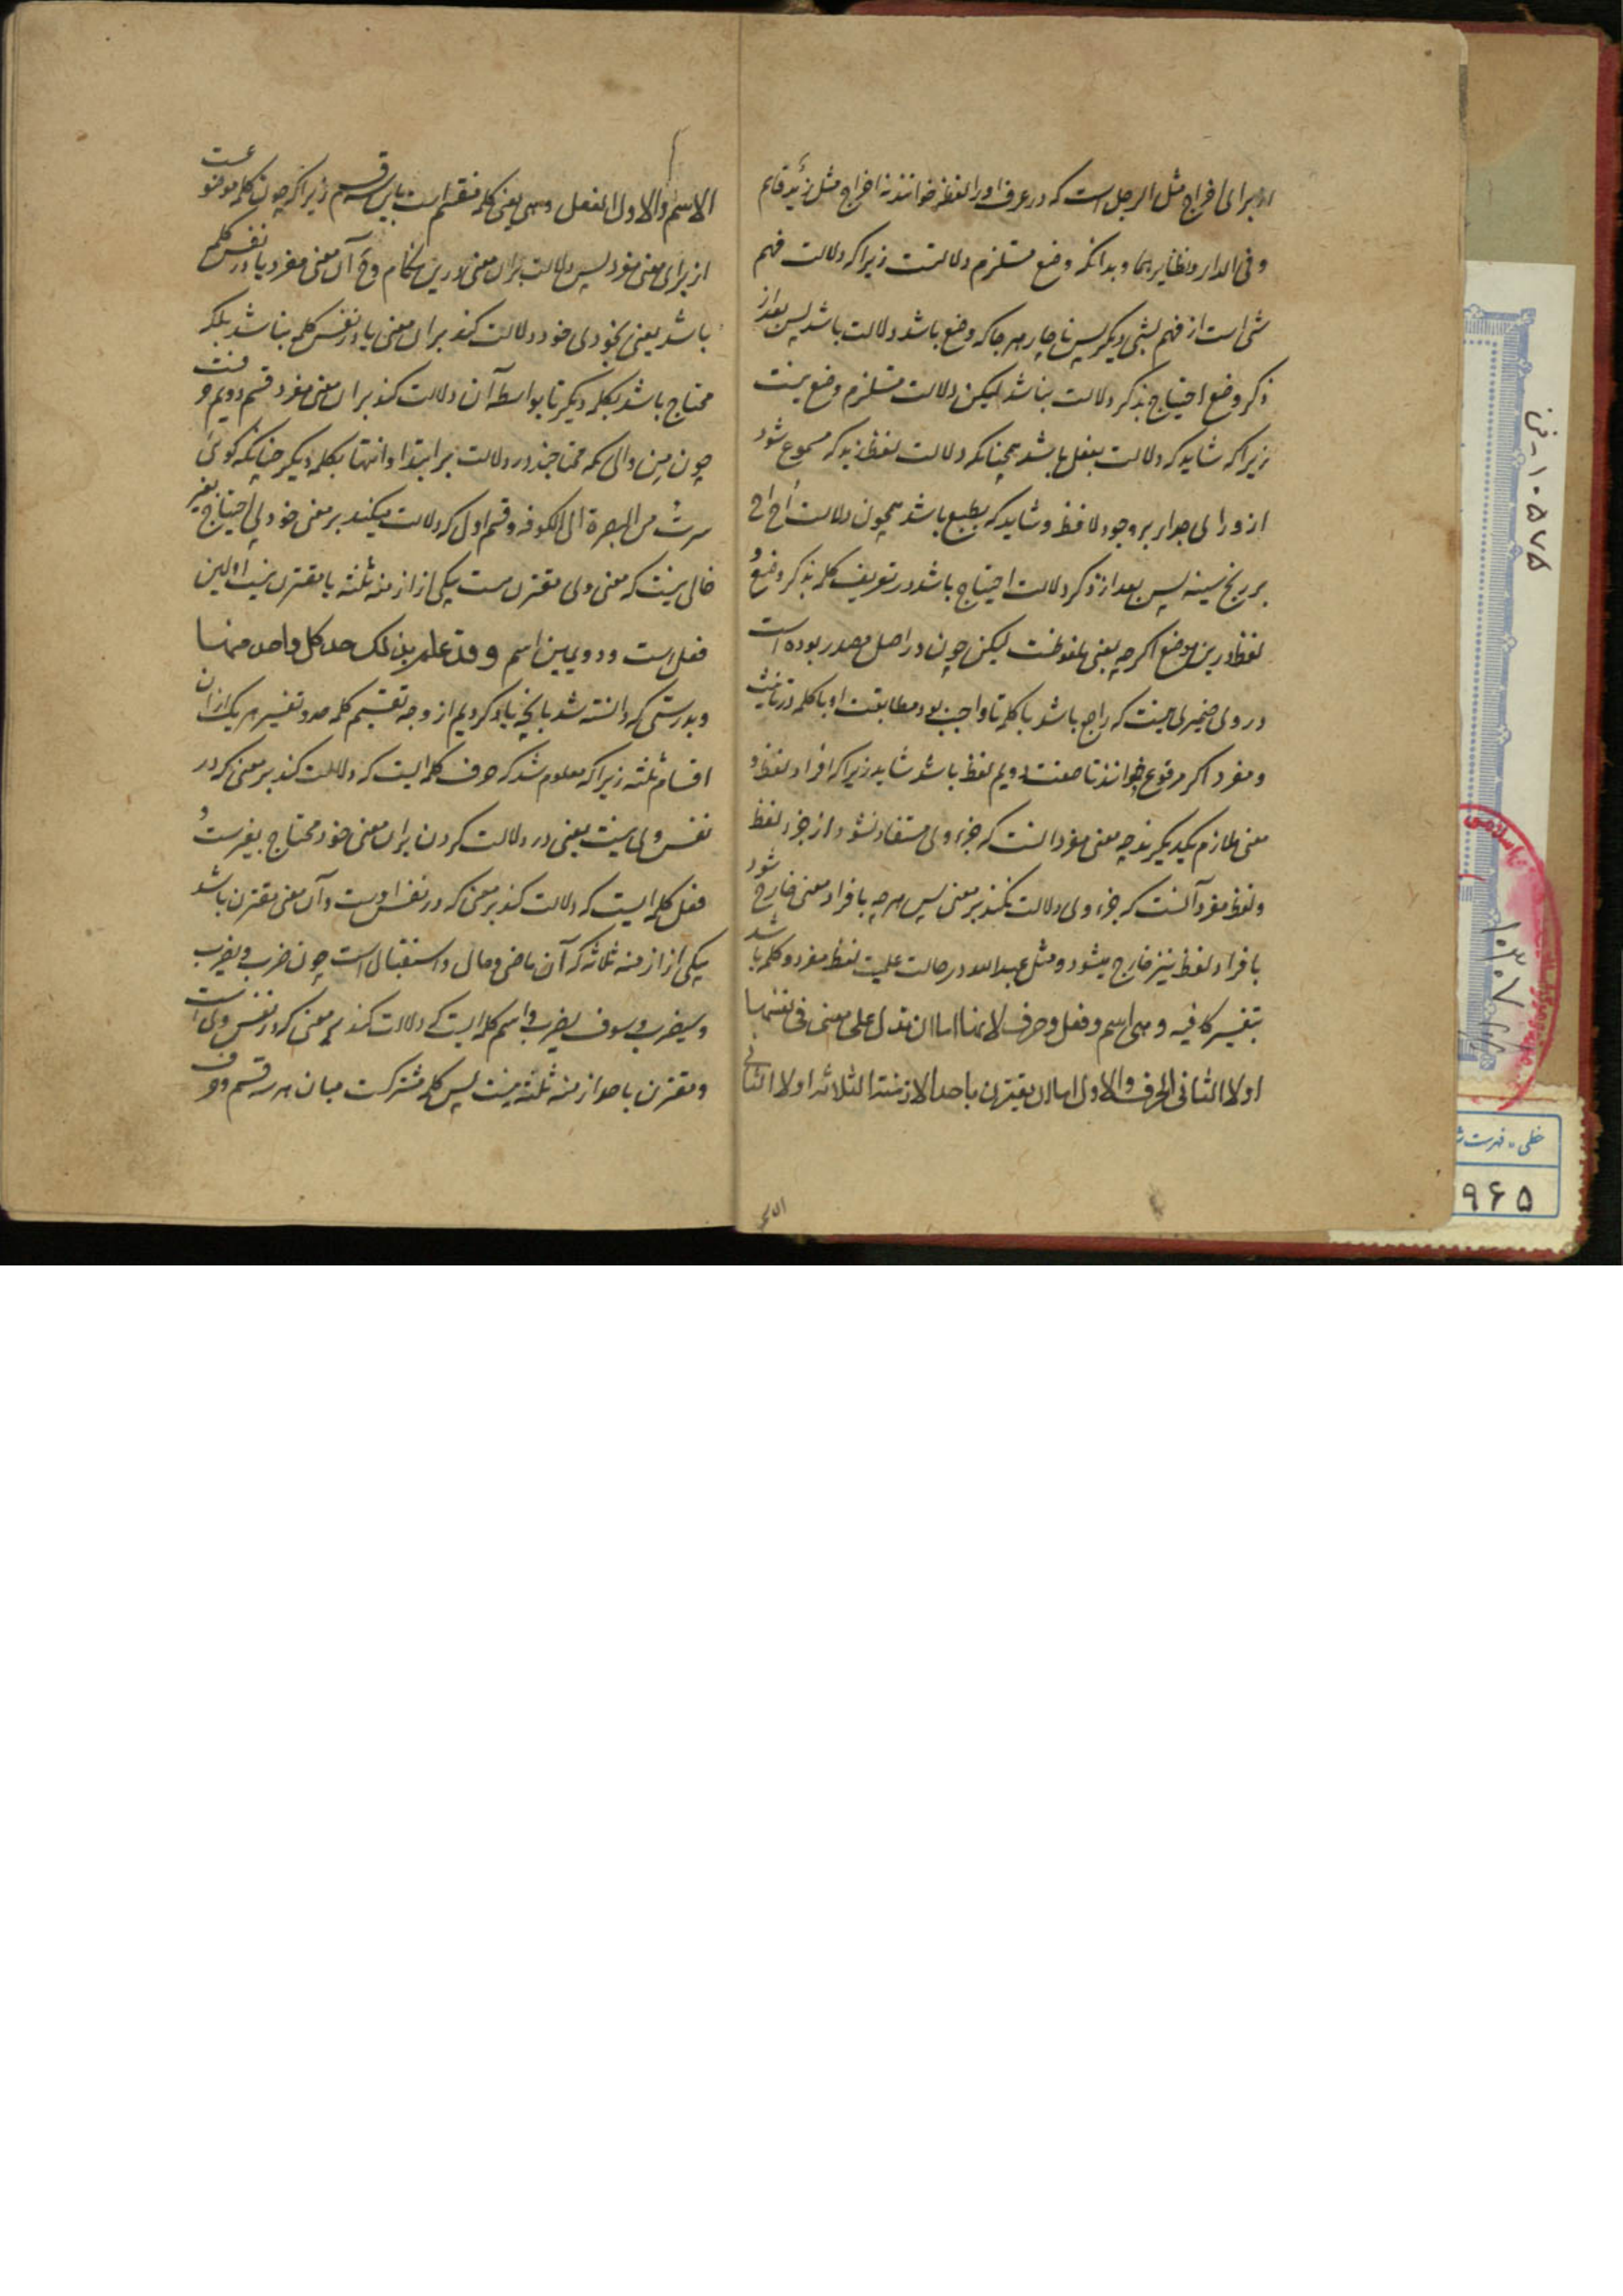 او برای اخراج مثل الرجل است که در عرف او را لفظ خوانند نه اخراج مثل زید قایم
و فی الدار و نظایر هما و بدانکه وضع مستلزم دلالتست زیرا که دلالت فهم
شی است از فهم شیء دیگر پس ناچار هر جا که وضع باشد دلالت باشد پس بعد از
ذکر وضع احتیاج بذکر دلالت نباشد لیکن دلالت مستلزم وضع نیست
زیرا که شاید که دلالت بعقل باشد همچنانکه دلالت لفظ زید که مسموع شود
از ورای جدار بر وجود لافظ و شاید که بطبع باشد همچون دلالت اح اح
بر رنج سینه پس بعد از ذکر دلالت احتیاج باشد در تعریف کلمه بذکر وضع و
لفظ درین موضع اگر چه بمعنی ملفوظست لیکن چون در اصل مصدر بوده است
در وی ضمیری نیست که راجع باشد با کلمه تا واجب بود مطابقت او با کلمه در تأنیث
و مفرد اگر مرفوع خوانند تا صفت دویم لفظ باشد شاید زیرا که افراد لفظ و
معنی ملازم یکدیگرند چه معنی مفرد آنست که جزء وی مستفاد نشود از جزء لفظ
و لفظ مفرد آنست که جزء وی دلالت نکند بر معنی پس هر چه بافراد معنی خارج شود
بافراد لفظ نیز خارج میشود و مثل عبدالله در حالت علمیت لفظ مفرد و کلمه باشد
بتفسیر کافیه و هی اسم و فعل و حرف لانها اما ان تدل علی معنی فی نفسها
او لا الثانی الحرف والاول اما ان یقترن باحد الازمنة الثلاثه او لا الثانی
الاسم والاول الفعل وهی یعنی کلمه منقسم است باین سه قسم زیرا که چون کلمه موضوعست
از برای معنی مفرد پس دلالت بر آن معنی درین هنگام و آن معنی مفرد یا در نفس کلمه
باشد یعنی بخودی خود دلالت کند بر آن معنی یا در نفس کلمه نباشد بلکه
محتاج باشد بکلمه دیگر تا بواسطه آن دلالت کند بر آن معنی مفرد قسم دویم
چون من والی که محتاجند در دلالت بر ابتدا و انتها بکلمه دیگر چنانکه گوئی
سرت من البصرة الی الکوفه و قسم اول که دلالت میکند بر معنی خود بی احتیاج بغیر
خالی نیست که معنی وی مقترن است بیکی از ازمنه ثلثه یا مقترن نیست اولین
فعل است و دویمین اسم و قد علم بذلک حد کل واحد منها
و بدرستی که دانسته شد بانچه یاد کردیم از وجه تقسیم کلمه حد و تفسیر هر یک از آن
اقسام ثلثه زیرا که معلوم شد که حرف کلمه ایست که دلالت کند بر معنی که در
نفس وی نیست یعنی در دلالت کردن بر آن معنی خود محتاج بغیر است و
فعل کلمه ایست که دلالت کند بر معنی که در نفس اوست و آن معنی مقترن باشد
بیکی از ازمنه ثلاثه که آن ماضی و حال و استقبال است چون ضرب و یضرب
و سیضرب و سوف یضرب و اسم کلمه ایست که دلالت کند بر معنی که در نفس وی است
و مقترن باحد ازمنه ثلثه نیست پس کلمه مشترکست میان هر سه قسم و
الاسم
۱۰۵۷۵
۱۰۳۰۷
خطی - فهرست
۹۶۵